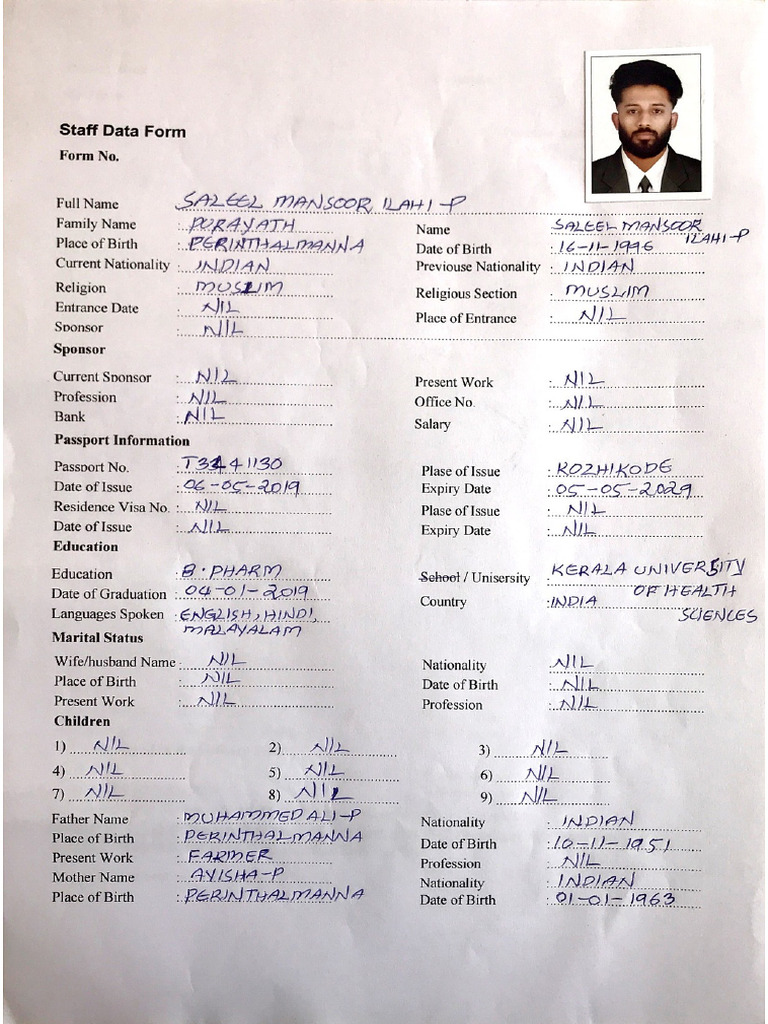 Staff Data Form
Form No.
Full Name : SALEEL MANSOOR ILAHI-P
Family Name : PURAYATH Name : SALEEL MANSOOR ILAHI-P
Place of Birth : PERINTHALMANNA Date of Birth : 16-11-1996
Current Nationality : INDIAN Previouse Nationality : INDIAN
Religion : MUSLIM Religious Section : MUSLIM
Entrance Date : NIL Place of Entrance : NIL
Sponsor : NIL
Sponsor
Current Sponsor : NIL Present Work : NIL
Profession : NIL Office No. : NIL
Bank : NIL Salary : NIL
Passport Information
Passport No. : T3441130 Plase of Issue : KOZHIKODE
Date of Issue : 06-05-2019 Expiry Date : 05-05-2029
Residence Visa No. : NIL Plase of Issue : NIL
Date of Issue : NIL Expiry Date : NIL
Education
Education : B.PHARM School / Unisersity : KERALA UNIVERSITY
Date of Graduation : 04-01-2019 OF HEALTH
Languages Spoken : ENGLISH, HINDI, Country : INDIA SCIENCES
MALAYALAM
Marital Status
Wife/husband Name : NIL Nationality : NIL
Place of Birth : NIL Date of Birth : NIL
Present Work : NIL Profession : NIL
Children
1) NIL 2) NIL 3) NIL
4) NIL 5) NIL 6) NIL
7) NIL 8) NIL 9) NIL
Father Name : MUHAMMED ALI-P Nationality : INDIAN
Place of Birth : PERINTHALMANNA Date of Birth : 10-11-1951
Present Work : FARMER Profession : NIL
Mother Name : AYISHA-P Nationality : INDIAN
Place of Birth : PERINTHALMANNA Date of Birth : 01-01-1963